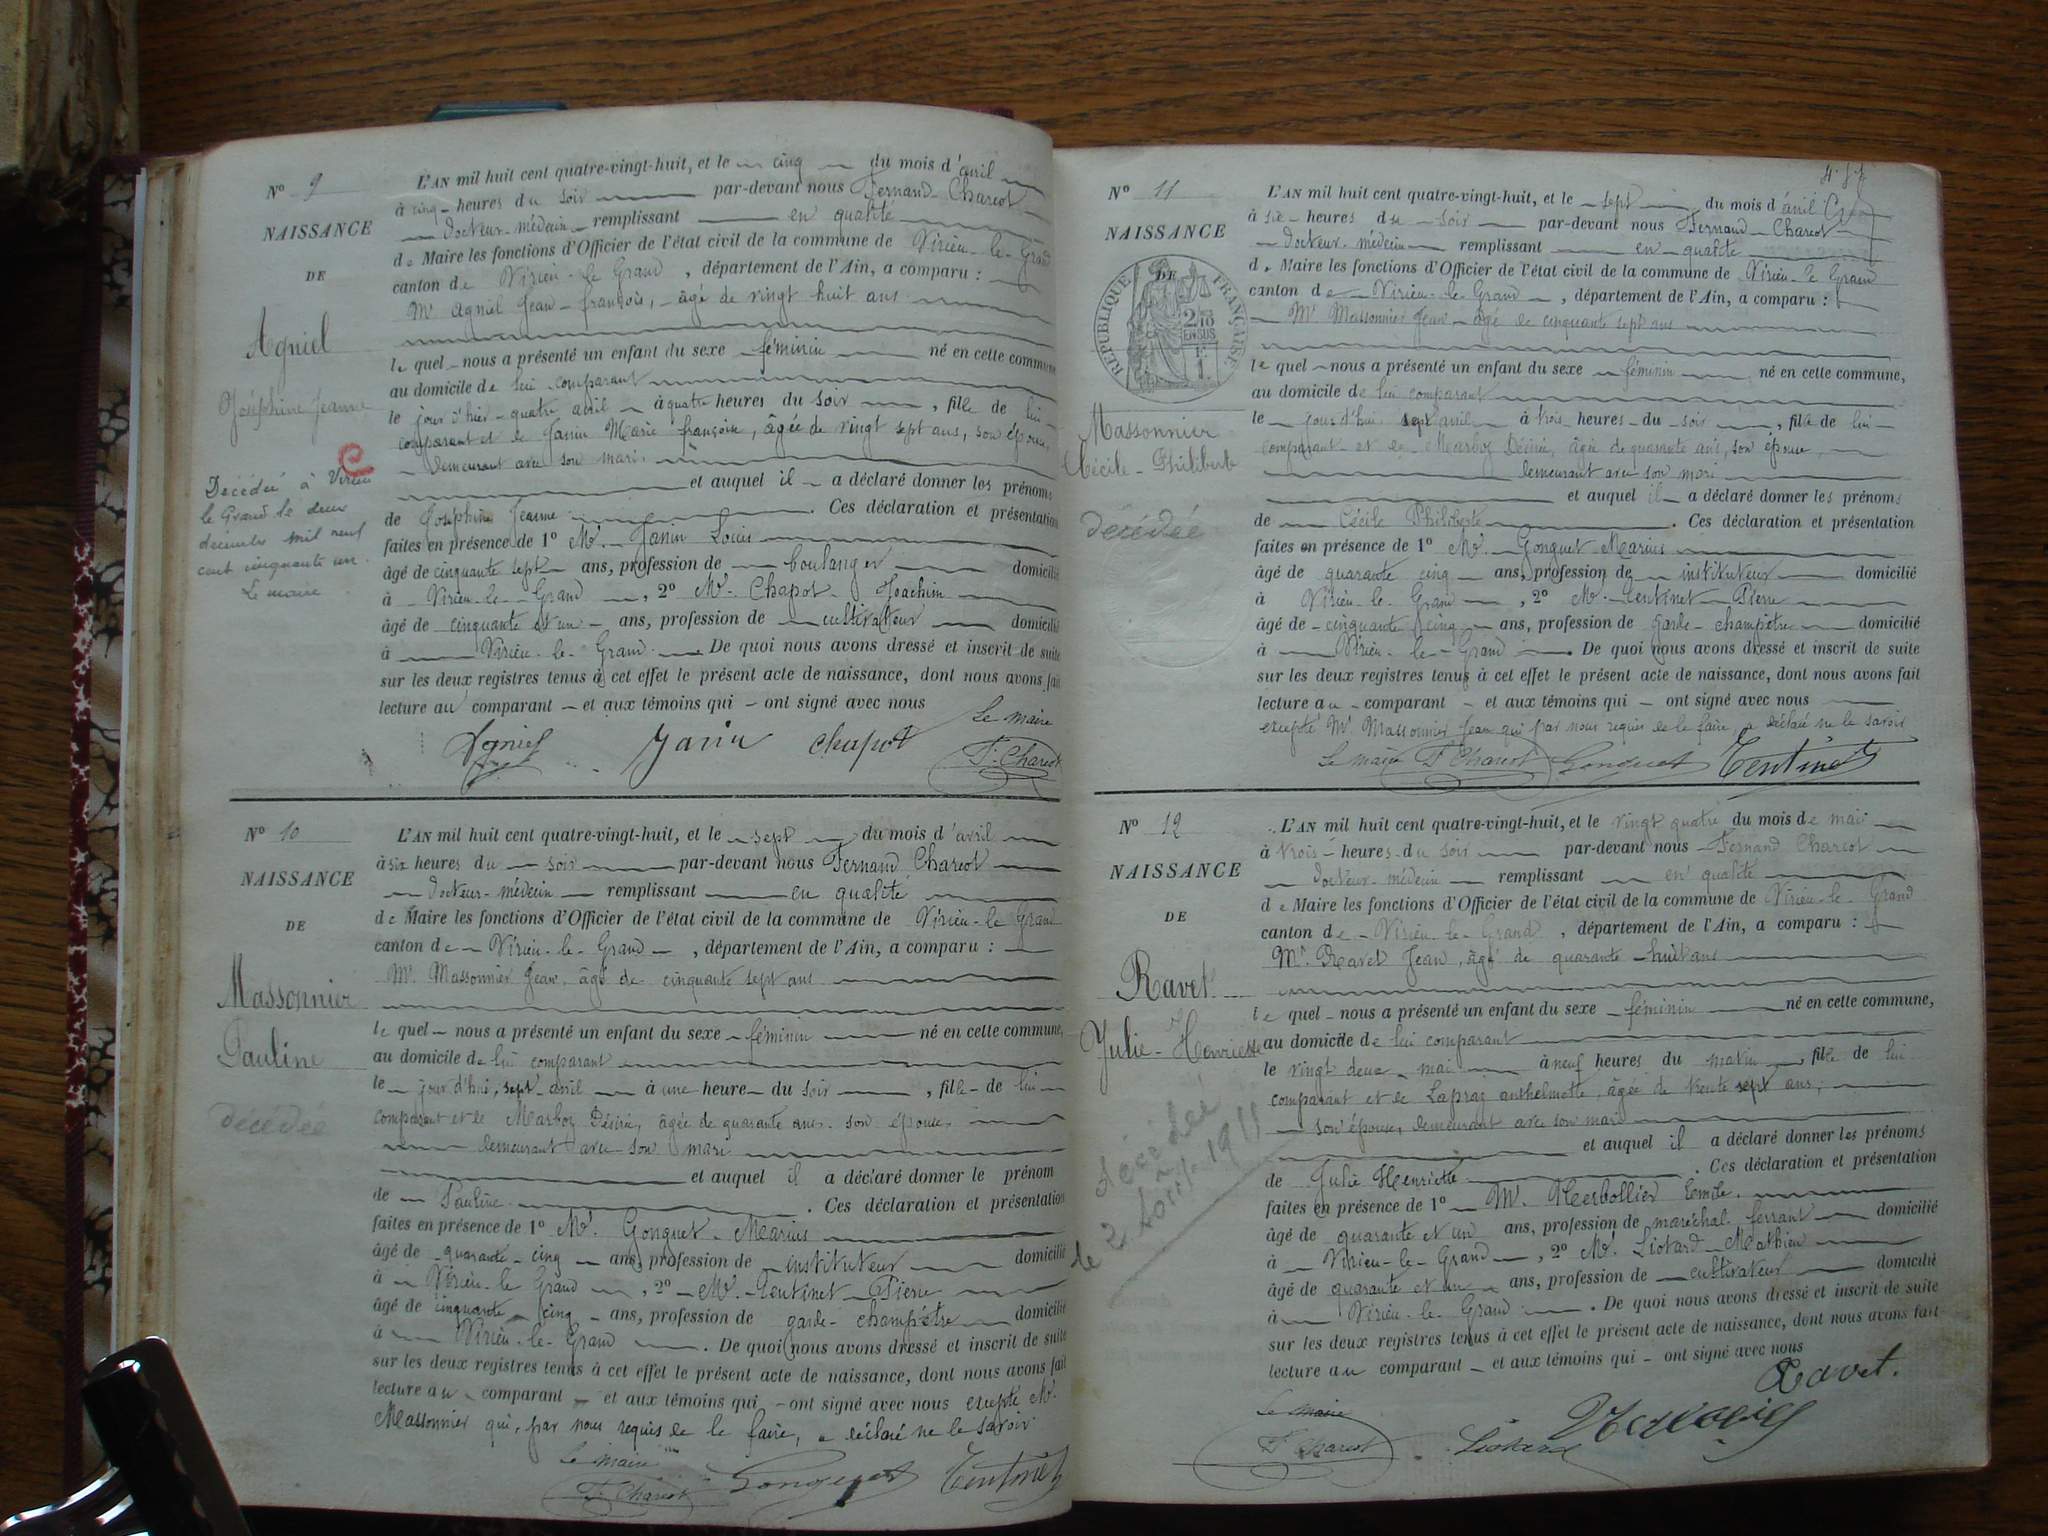 N° 9
NAISSANCE
DE
Agniel
Joséphine Jeanne
Décédée à Virieu
le Grand le deux
décembre mil neuf
cent cinquante un.
Le maire
L'AN mil huit cent quatre-vingt-huit, et le cinq du mois d'avril
à cinq heures du soir par-devant nous Fernand Charcot
docteur-médecin remplissant en qualité
de Maire les fonctions d'Officier de l'état civil de la commune de Virieu-le-Grand
canton de Virieu-le-Grand, département de l'Ain, a comparu :
Mr Agniel Jean-françois, âgé de vingt huit ans
le quel nous a présenté un enfant du sexe féminin né en cette commune
au domicile de lui comparant
le jour d'hier quatre avril à quatre heures du soir, fille de lui
comparant et de Janin Marie françoise, âgée de vingt sept ans, son épouse,
demeurant avec son mari.
et auquel il a déclaré donner les prénoms
de Joséphine Jeanne. Ces déclaration et présentation
faites en présence de 1° Mr. Janin Louis
âgé de cinquante sept ans, profession de boulanger domicilié
à Virieu-le-Grand, 2° Mr. Chapot Joachim
âgé de cinquante et un ans, profession de cultivateur domicilié
à Virieu-le-Grand. De quoi nous avons dressé et inscrit de suite
sur les deux registres tenus à cet effet le présent acte de naissance, dont nous avons fait
lecture au comparant et aux témoins qui ont signé avec nous
Le maire
Agniel Janin Chapot Dr Charcot
N° 10
NAISSANCE
DE
Massonnier
Pauline
décédée
L'AN mil huit cent quatre-vingt-huit, et le sept du mois d'avril
à six heures du soir par-devant nous Fernand Charcot
docteur-médecin remplissant en qualité
de Maire les fonctions d'Officier de l'état civil de la commune de Virieu-le-Grand
canton de Virieu-le-Grand, département de l'Ain, a comparu :
Mr. Massonnier Jean, âgé de cinquante sept ans
le quel nous a présenté un enfant du sexe féminin né en cette commune,
au domicile de lui comparant
le jour d'hui, sept avril à une heure du soir, fille de lui
comparant et de Marboz Désirée, âgée de quarante ans, son épouse,
demeurant avec son mari
et auquel il a déclaré donner le prénom
de Pauline. Ces déclaration et présentation
faites en présence de 1° Mr. Gonguet Marius
âgé de quarante-cinq ans, profession de instituteur domicilié
à Virieu-le-Grand, 2° Mr. Tentinet Pierre
âgé de cinquante cinq ans, profession de garde-champêtre domicilié
à Virieu-le-Grand. De quoi nous avons dressé et inscrit de suite
sur les deux registres tenus à cet effet le présent acte de naissance, dont nous avons fait
lecture au comparant et aux témoins qui ont signé avec nous excepté Mr.
Massonnier qui, par nous requis de le faire, a déclaré ne le savoir.
Le maire
Dr Charcot Gonguet Tentinet
N° 11
NAISSANCE
DE
RÉPUBLIQUE FRANÇAISE
2/10
EN SUS
Massonnier
Cécile-Philiberte
décédée
L'AN mil huit cent quatre-vingt-huit, et le sept du mois d'avril
à six heures du soir par-devant nous Fernand Charcot
docteur-médecin remplissant en qualité
de Maire les fonctions d'Officier de l'état civil de la commune de Virieu-le-Grand
canton de Virieu-le-Grand, département de l'Ain, a comparu :
Mr. Massonnier Jean, âgé de cinquante sept ans
le quel nous a présenté un enfant du sexe féminin né en cette commune,
au domicile de lui comparant
le jour d'hui sept avril à trois heures du soir, fille de lui
comparant et de Marboz Désirée, âgée de quarante ans, son épouse,
demeurant avec son mari
et auquel il a déclaré donner les prénoms
de Cécile Philiberte. Ces déclaration et présentation
faites en présence de 1° Mr. Gonguet Marius
âgé de quarante cinq ans, profession de instituteur domicilié
à Virieu-le-Grand, 2° Mr. Tentinet Pierre
âgé de cinquante cinq ans, profession de garde-champêtre domicilié
à Virieu-le-Grand. De quoi nous avons dressé et inscrit de suite
sur les deux registres tenus à cet effet le présent acte de naissance, dont nous avons fait
lecture au comparant et aux témoins qui ont signé avec nous
excepté Mr. Massonnier Jean qui par nous requis de le faire, a déclaré ne le savoir
Le maire Dr Charcot Gonguet Tentinet
N° 12
NAISSANCE
DE
Ravet
Julie-Henriette
décédée
le 2 Août 1911
L'AN mil huit cent quatre-vingt-huit, et le vingt quatre du mois de mai
à trois heures du soir par-devant nous Fernand Charcot
docteur-médecin remplissant en qualité
de Maire les fonctions d'Officier de l'état civil de la commune de Virieu-le-Grand
canton de Virieu-le-Grand, département de l'Ain, a comparu :
Mr. Ravet Jean, âgé de quarante huit ans
le quel nous a présenté un enfant du sexe féminin né en cette commune,
au domicile de lui comparant
le vingt deux mai à neuf heures du matin, fille de lui
comparant et de Lapraz anthelmette, âgée de trente sept ans,
son épouse, demeurant avec son mari
et auquel il a déclaré donner les prénoms
de Julie Henriette. Ces déclaration et présentation
faites en présence de 1° Mr. Emile.
âgé de quarante et un ans, profession de maréchal ferrant domicilié
à Virieu-le-Grand, 2° Mr. Liotard Mathieu
âgé de quarante et un ans, profession de cultivateur domicilié
à Virieu-le-Grand. De quoi nous avons dressé et inscrit de suite
sur les deux registres tenus à cet effet le présent acte de naissance, dont nous avons fait
lecture au comparant et aux témoins qui ont signé avec nous
Ravet.
Le maire
Dr Charcot Liotard